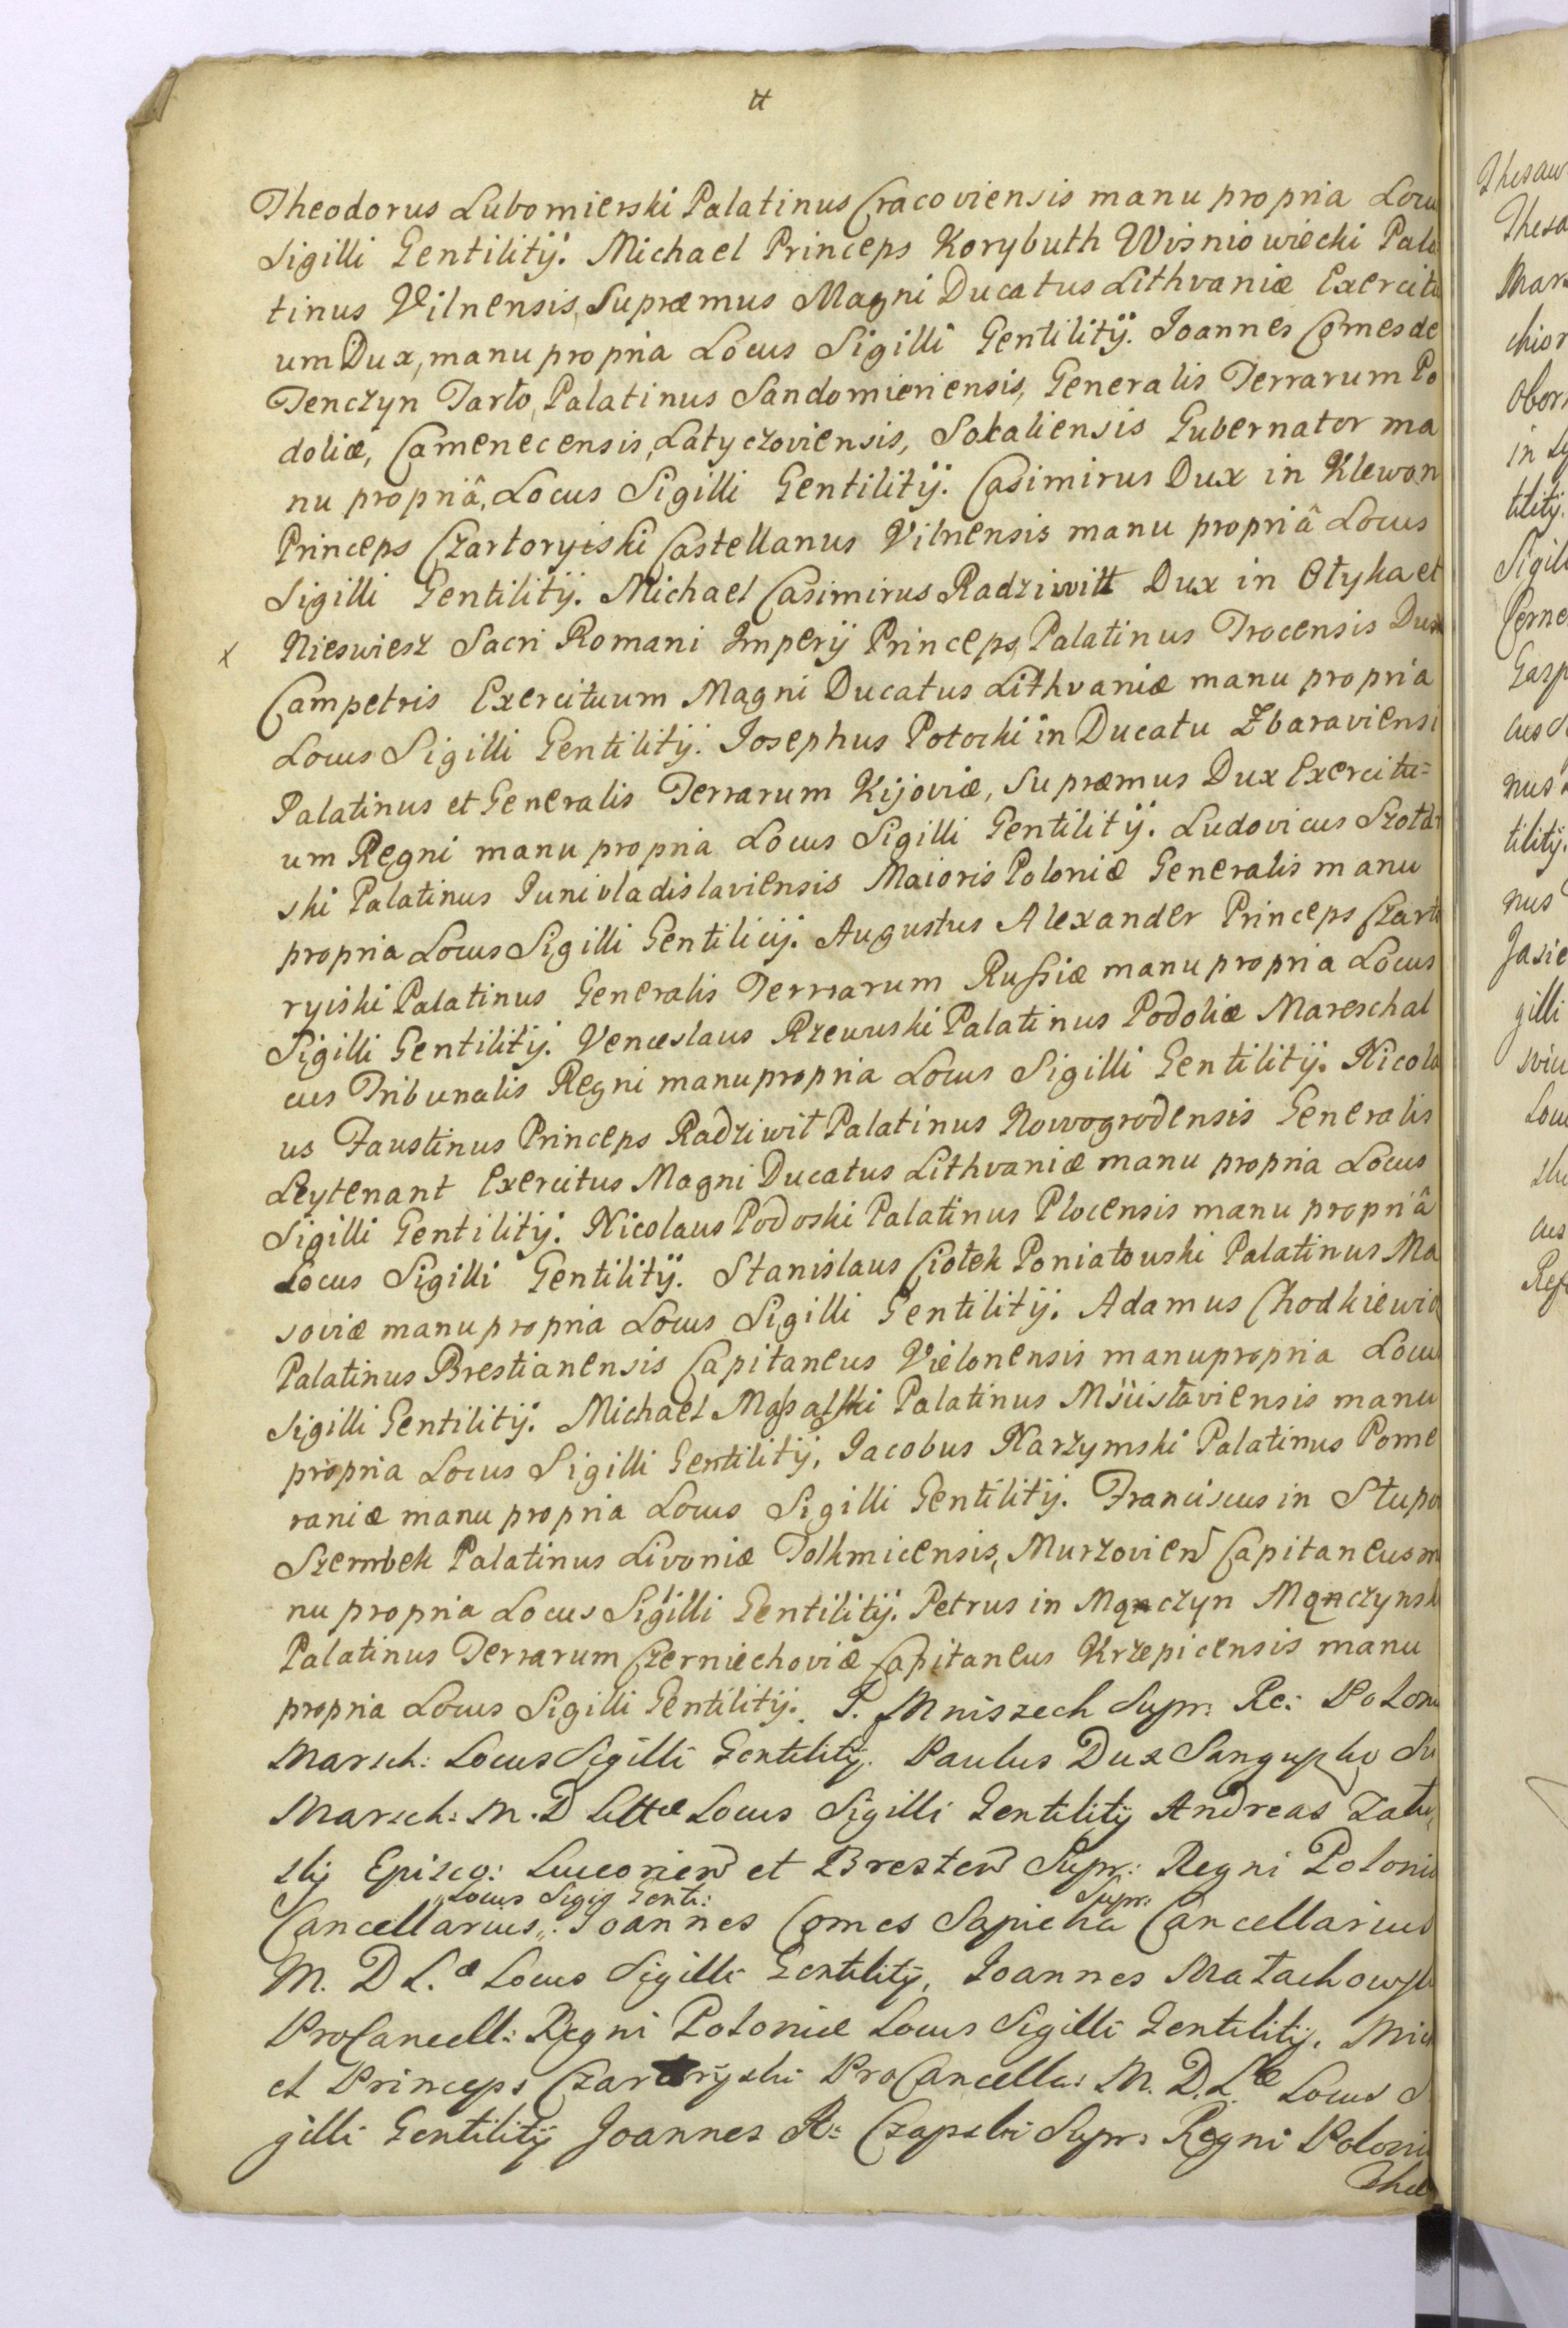 tt
Theodorus Lubomierski Palatinus Cracoviensis manu propria Locu
Sigilli Gentilitij. Michael Princeps Korybuth Wisniowiecki Pala
tinus Vilnensis, Supræmus Magni Ducatus Lithvaniæ Exercitu
um Dux, manu propria Locus Sigilli Gentilitij. Joannes Comes de
Tenczyn Tarło, Palatinus Sandomieriensis, Generalis Terrarum Po
doliæ, Camenecensis, Latyczoviensis, Sokaliensis Gubernator ma
nu propriâ, Locus Sigilli Gentilitij. Casimirus Dux in Klewan
Princeps Czartoryiski Castellanus Vilnensis manu propriâ Locus
Sigilli Gentilitij. Michael Casimirus Radziwiłł Dux in Ołyka et
x Nieswiesz Sacri Romani Imperij Princeps, Palatinus Trocensis Dux
Campetris Exercituum Magni Ducatus Lithvaniæ manu propria
Locus Sigilli Gentilitij. Josephus Potocki in Ducatu Zbaraviensi
Palatinus et Generalis Terrarum Kijoviæ, Supræmus Dux Exercitu=
um Regni manu propria Locus Sigilli Gentilitij. Ludovicus Szołdr
ski Palatinus Junivladislaviensis Maioris Poloniæ Generalis manu
propria Locus Sigilli Gentilicij. Augustus Alexander Princeps Czarto
ryiski Palatinus Generalis Terrarum Russiæ manu propria Locus
Sigilli Gentilitij. Venceslaus Rzewuski Palatinus Podoliæ Mareschal
cus Tribunalis Regni manu propria Locus Sigilli Gentilitij. Nicola
us Faustinus Princeps Radziwił Palatinus Nowogrodensis Generalis
Leytenant Exercitus Magni Ducatus Lithvaniæ manu propria Locus
Sigilli Gentilitij. Nicolaus Podoski Palatinus Plocensis manu propriâ
Locus Sigilli Gentilitij. Stanislaus Ciołek Poniatowski Palatinus Ma
soviæ manu propria Locus Sigilli Gentilitij. Adamus Chodkiewic
Palatinus Brestianensis Capitaneus Vielonensis manu propria Locu
Sigilli Gentilitij. Michael Massalski Palatinus Mscislaviensis manu
propria Locus Sigilli Gentilitij, Jacobus Narzymski Palatinus Pome
raniæ manu propria Locus Sigilli Gentilitij. Franciscus in Słupo
Szembek Palatinus Livoniæ Tolkmicensis, Murzovien Capitaneus m
nu propria Locus Sigilli Gentilitij. Petrus in Mączyn Mączynsk
Palatinus Terrarum Czerniechoviæ Capitaneus Krzepicensis manu
propria Locus Sigilli Gentilitij. J. Mniszech Supr: Re: Polon
Marsch: Locus Sigilli Gentilitij. Paulus Dux Sangusko Su
Marsch: M. D Littæ Locus Sigilli Gentilitij Andreas Zału
skij Episco: Luceorien et Bresten Supr: Regni Poloniæ
Locus Sigig Genti: Supr:
Cancellarius,: Joannes Comes Sapieha Cancellarius
M. D L.æ Locus Sigilli Gentilitij, Joannes Małachowsk
ProCancell: Regni Poloniæ Locus Sigilli Gentilitij. Mich
et Princeps Czartoryski ProCancella: M. D. Læ Locus S
gilli Gentilitij Joannes A: Czapski Supr: Regni Poloni
The
Thesau
Thesa
Mars
chior
Obor
in Ly
tilitij.
Sigill
Cerne
Gasp
cus S
nus
tilitij.
nus
Jasie
gilli
Locu
cus